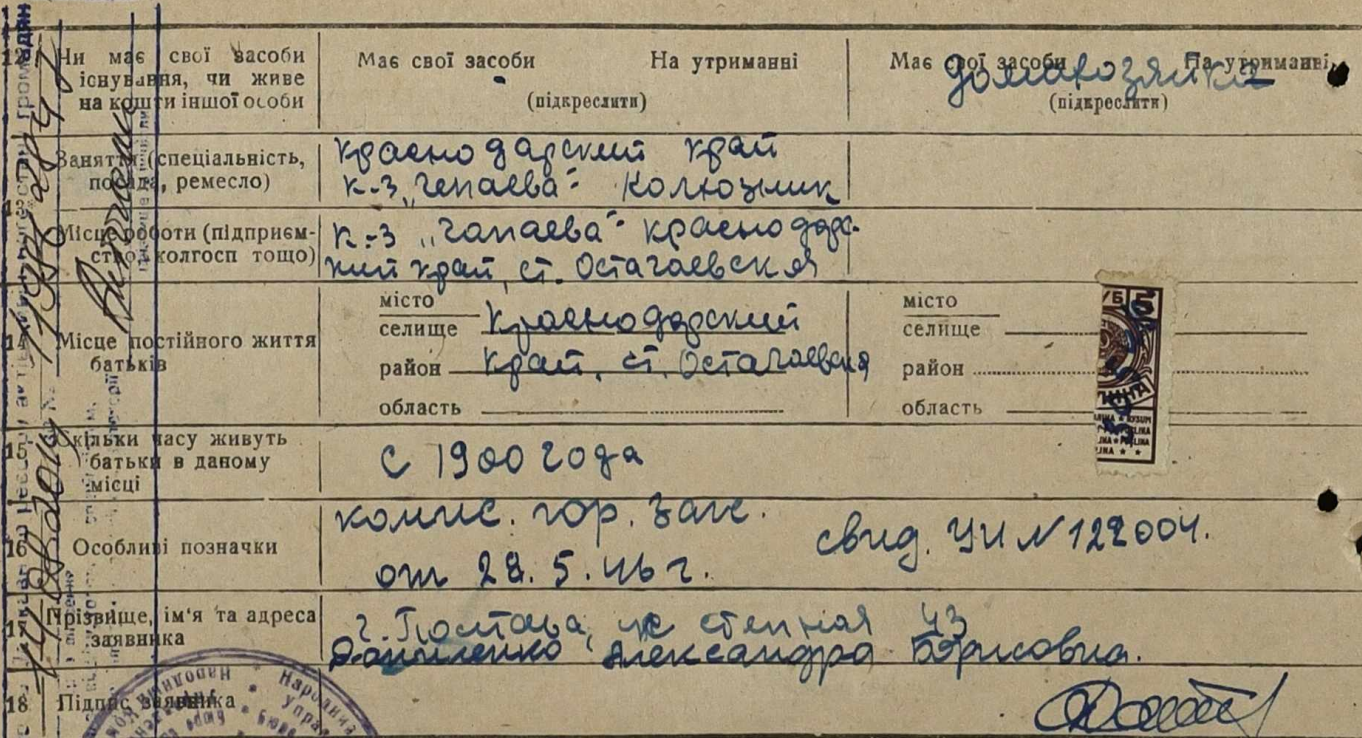 12 Чи має свої засоби
існування, чи живе
на кошти іншої особи
Має свої засоби На утриманні
(підкреслити)
Має свої засоби На утриманні
(підкреслити)
домохозяйка
13 Заняття (спеціальність,
посада, ремесло)
Краснодарский край
к-з „Чепаева" Колхозник
Місце роботи (підприєм-
ство, колгосп тощо)
к-з „Чапаева" краснодарс-
кий край, ст. Остагаевская
14 Місце постійного життя
батьків
місто
селище Краснодарский
район край, ст. Остагаевская
область
місто
селище
район
область
15 Скільки часу живуть
батьки в даному
місці
с 1900 года
16 Особливі позначки
комис. гор. загс.
от 28. 5. 46 г.
свид. УИ № 122004.
17 Прізвище, ім'я та адреса
заявника
г. Полтава, ул степная 43
Даниленко Александра Борисовна.
18 Підпис заявника